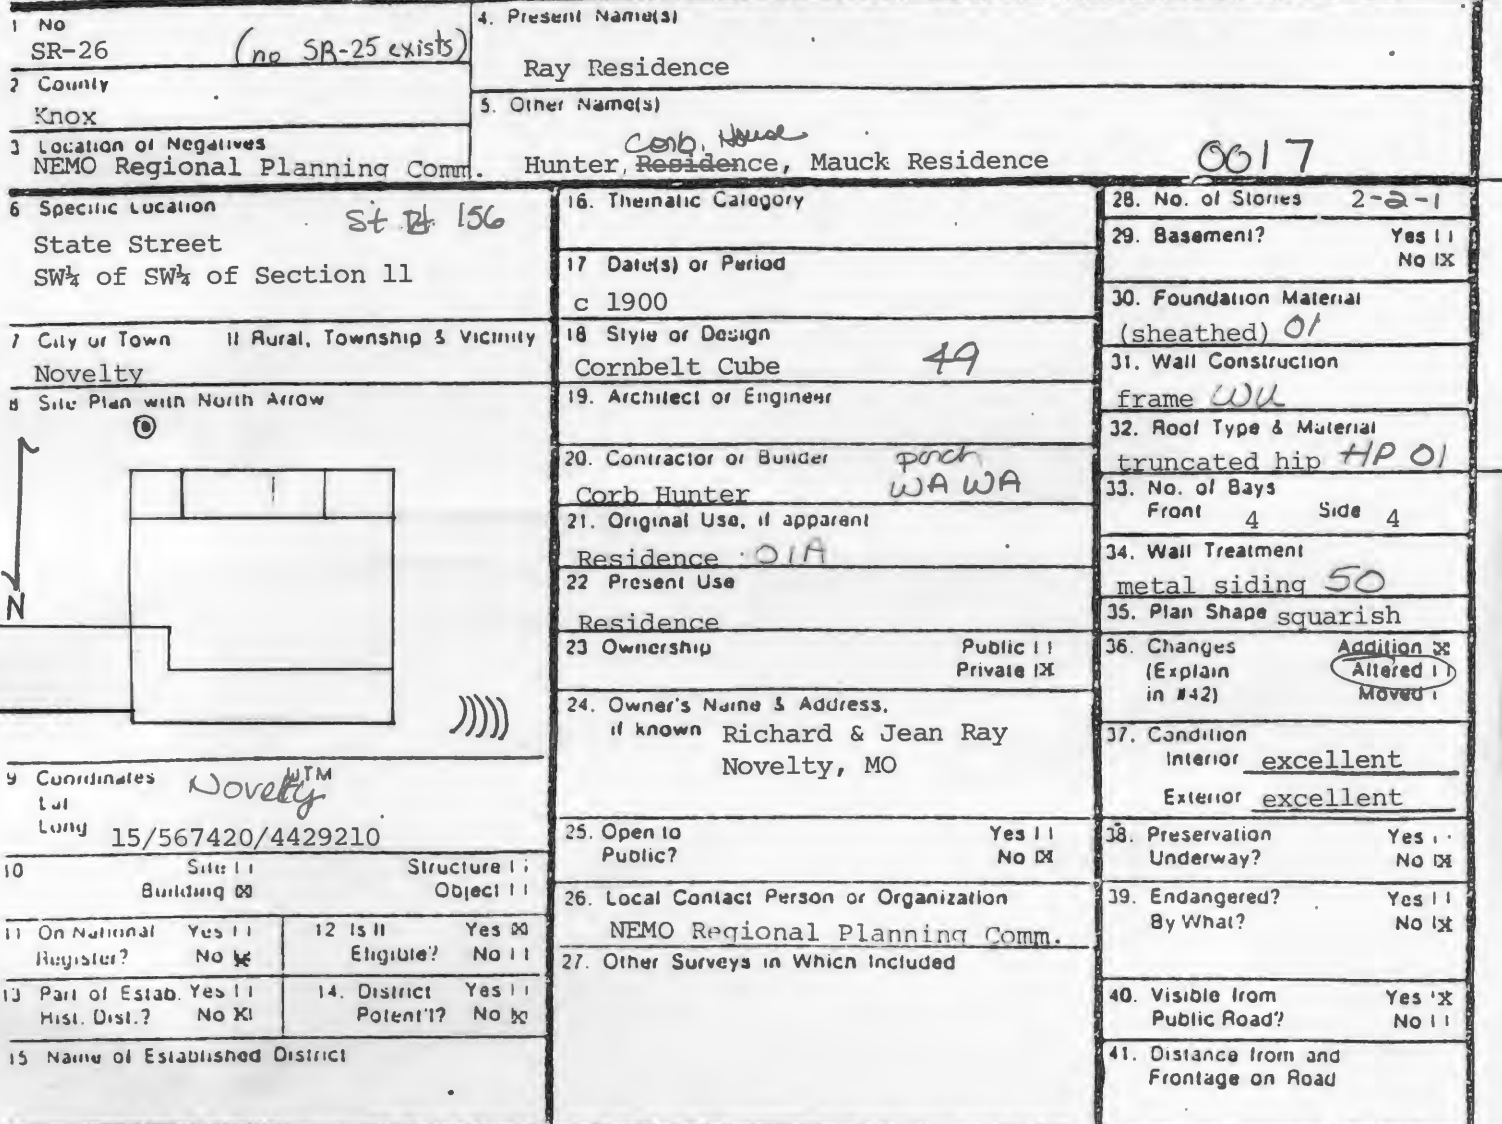 1 No
SR-26 (no SR-25 exists)
2 County
Knox
3 Location of Negatives
NEMO Regional Planning Comm.
4. Present Name(s)
Ray Residence
5. Other Name(s)
Corb. House
Hunter, Residence, Mauck Residence 0017
6 Specific Location
St Rt 156
State Street
SW¼ of SW¼ of Section 11
7 City or Town If Rural, Township & Vicinity
Novelty
8 Site Plan with North Arrow
N
9 Coordinates UTM
Novelty
Lat
Long
15/567420/4429210
10 Site | | Structure | |
Building |X| Object | |
11 On National Yes | |
Register? No |X|
12 Is It Yes |X|
Eligible? No | |
13 Part of Estab. Yes | |
Hist. Dist.? No |X|
14. District Yes | |
Potent'l? No |X|
15 Name of Established District
16. Thematic Category
17 Date(s) or Period
c 1900
18 Style or Design
Cornbelt Cube 49
19. Architect or Engineer
20. Contractor or Builder porch
Corb Hunter WA WA
21. Original Use, if apparent
Residence 01A
22 Present Use
Residence
23 Ownership Public | |
Private |X|
24. Owner's Name & Address,
if known Richard & Jean Ray
Novelty, MO
25. Open to Yes | |
Public? No |X|
26. Local Contact Person or Organization
NEMO Regional Planning Comm.
27. Other Surveys in Which Included
28. No. of Stories 2-2-1
29. Basement? Yes | |
No |X
30. Foundation Material
(sheathed) 01
31. Wall Construction
frame WU
32. Roof Type & Material
truncated hip HP 01
33. No. of Bays
Front 4 Side 4
34. Wall Treatment
metal siding 50
35. Plan Shape squarish
36. Changes Addition |X|
(Explain Altered | |
in #42) Moved |
37. Condition
Interior excellent
Exterior excellent
38. Preservation Yes | |
Underway? No |X|
39. Endangered? Yes | |
By What? No |X|
40. Visible from Yes |X
Public Road? No | |
41. Distance from and
Frontage on Road